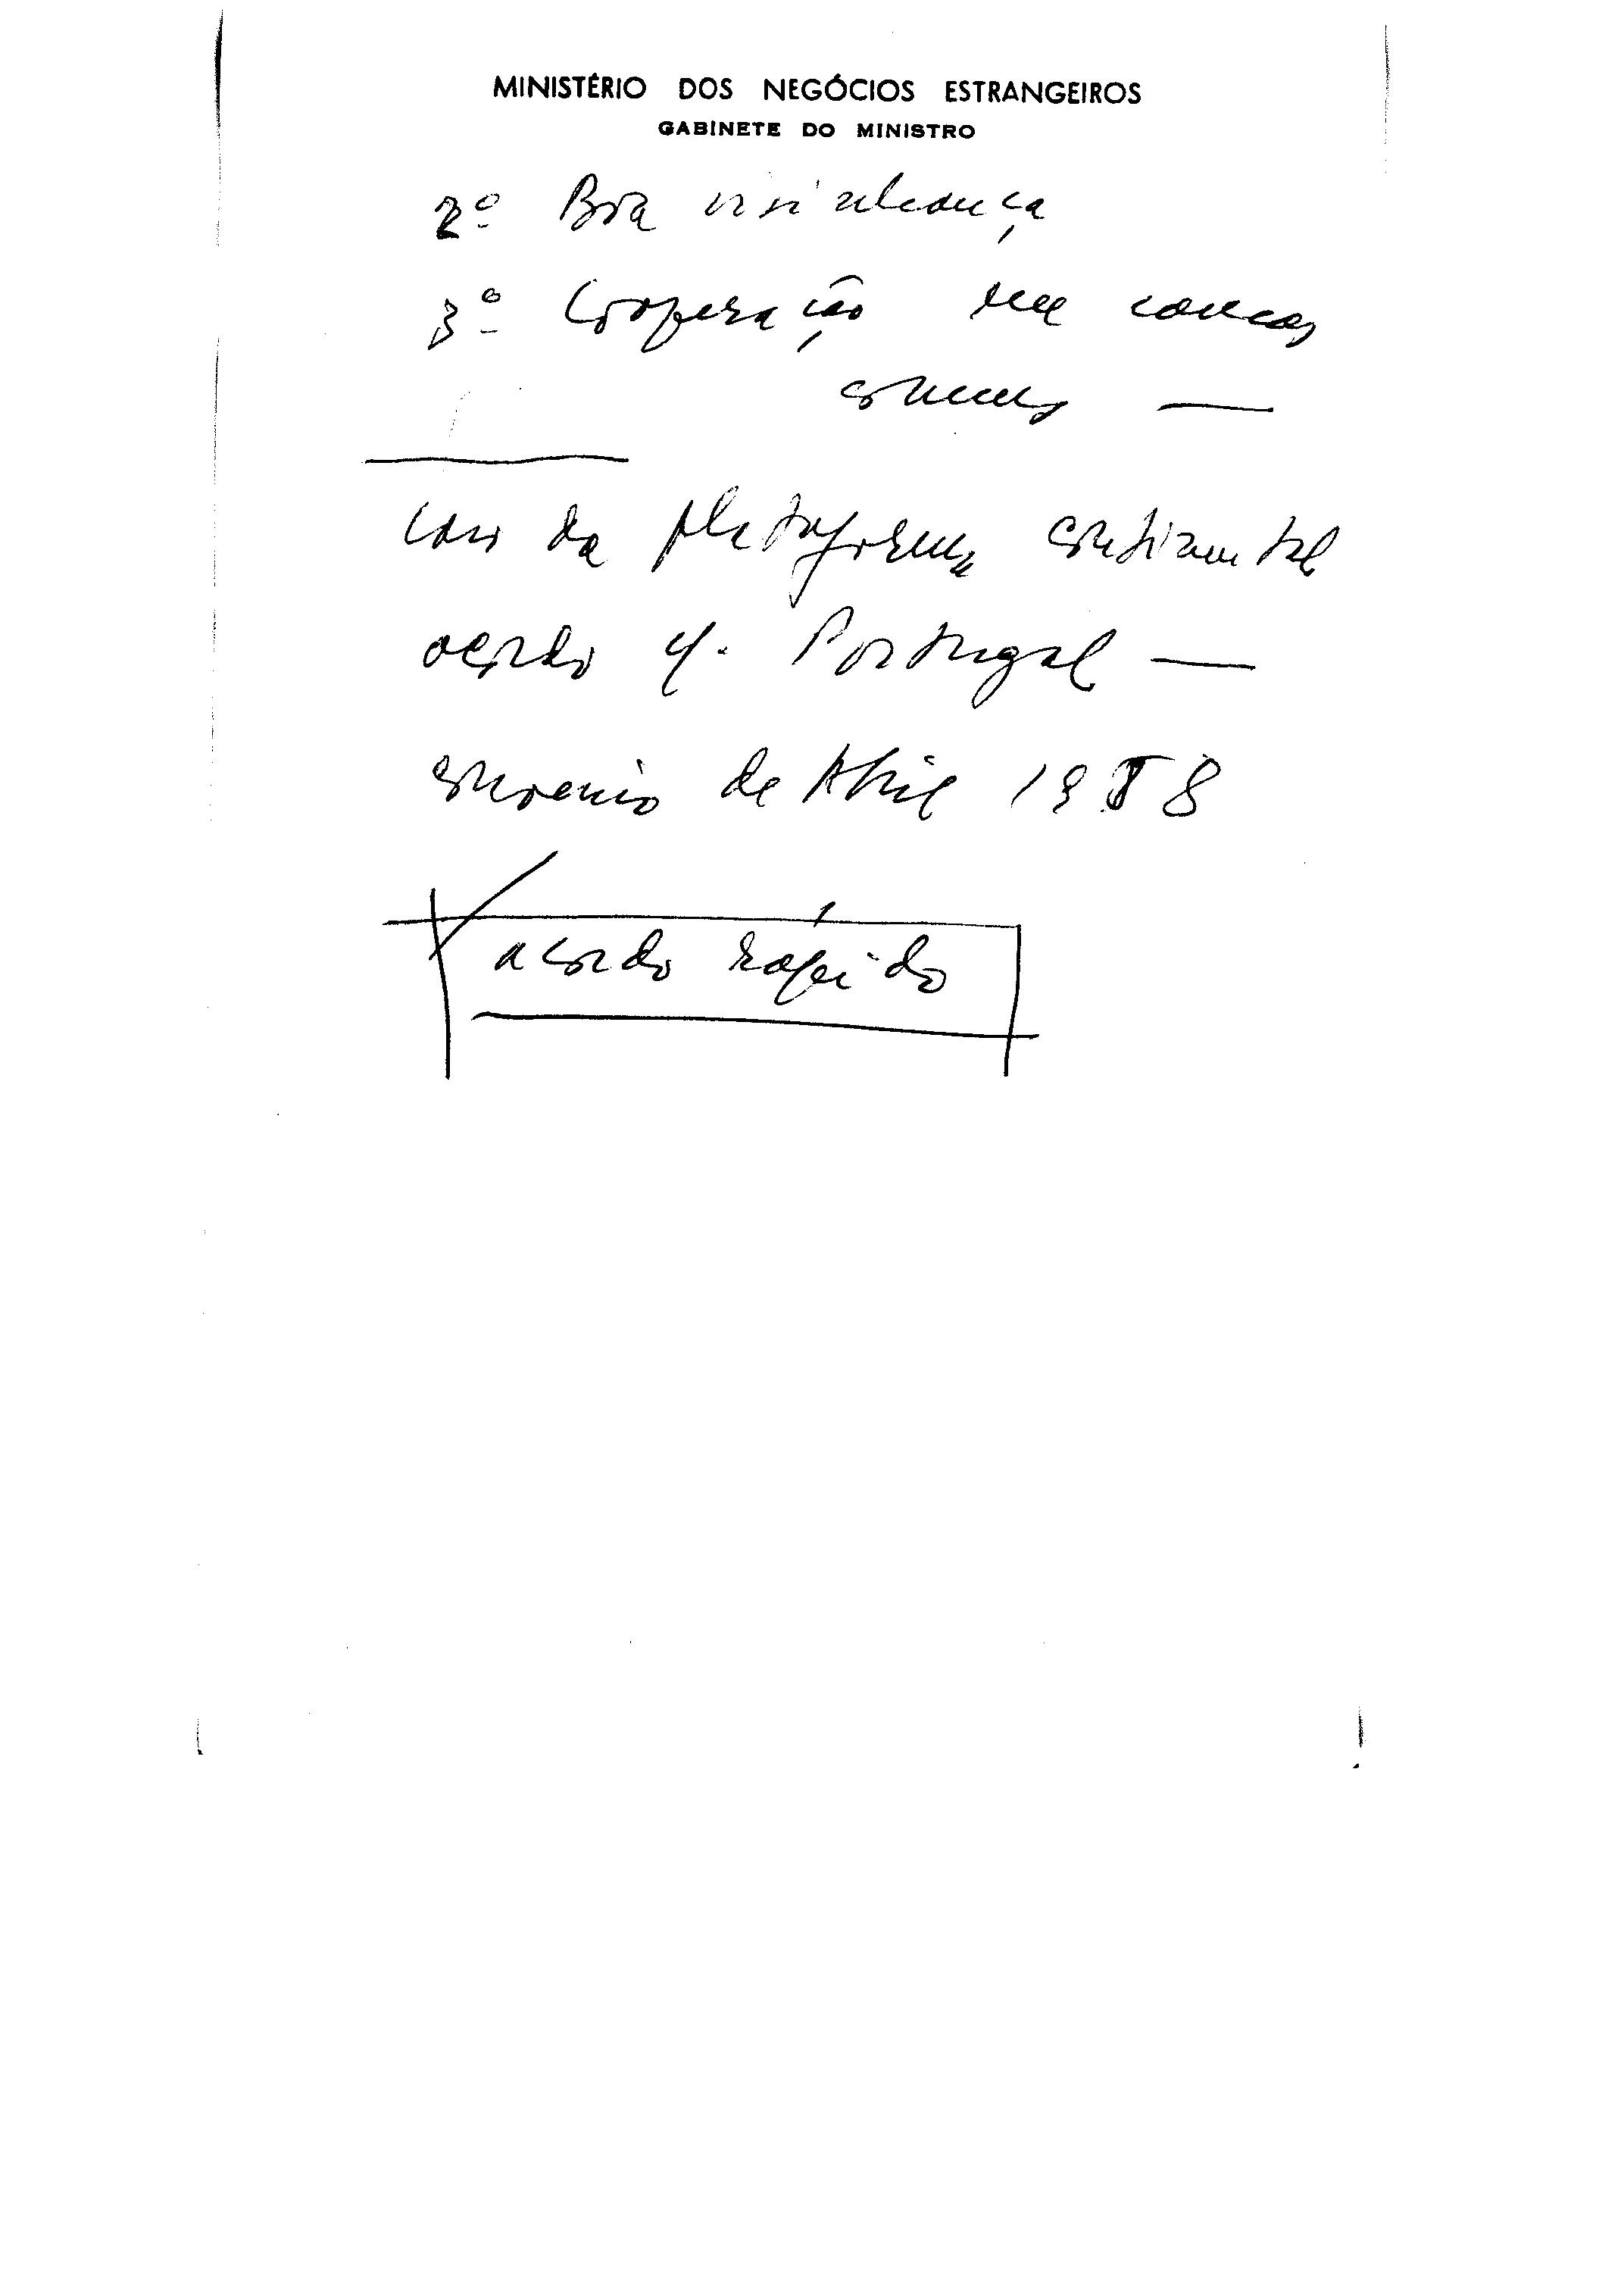 MINISTÉRIO DOS NEGÓCIOS ESTRANGEIROS
GABINETE DO MINISTRO
2º Boa visinhança
3º Cooperação em
comuns —
caso da plataforma continental
acordo c/. Portugal —
convenio de Abril 1958
acordo rápido